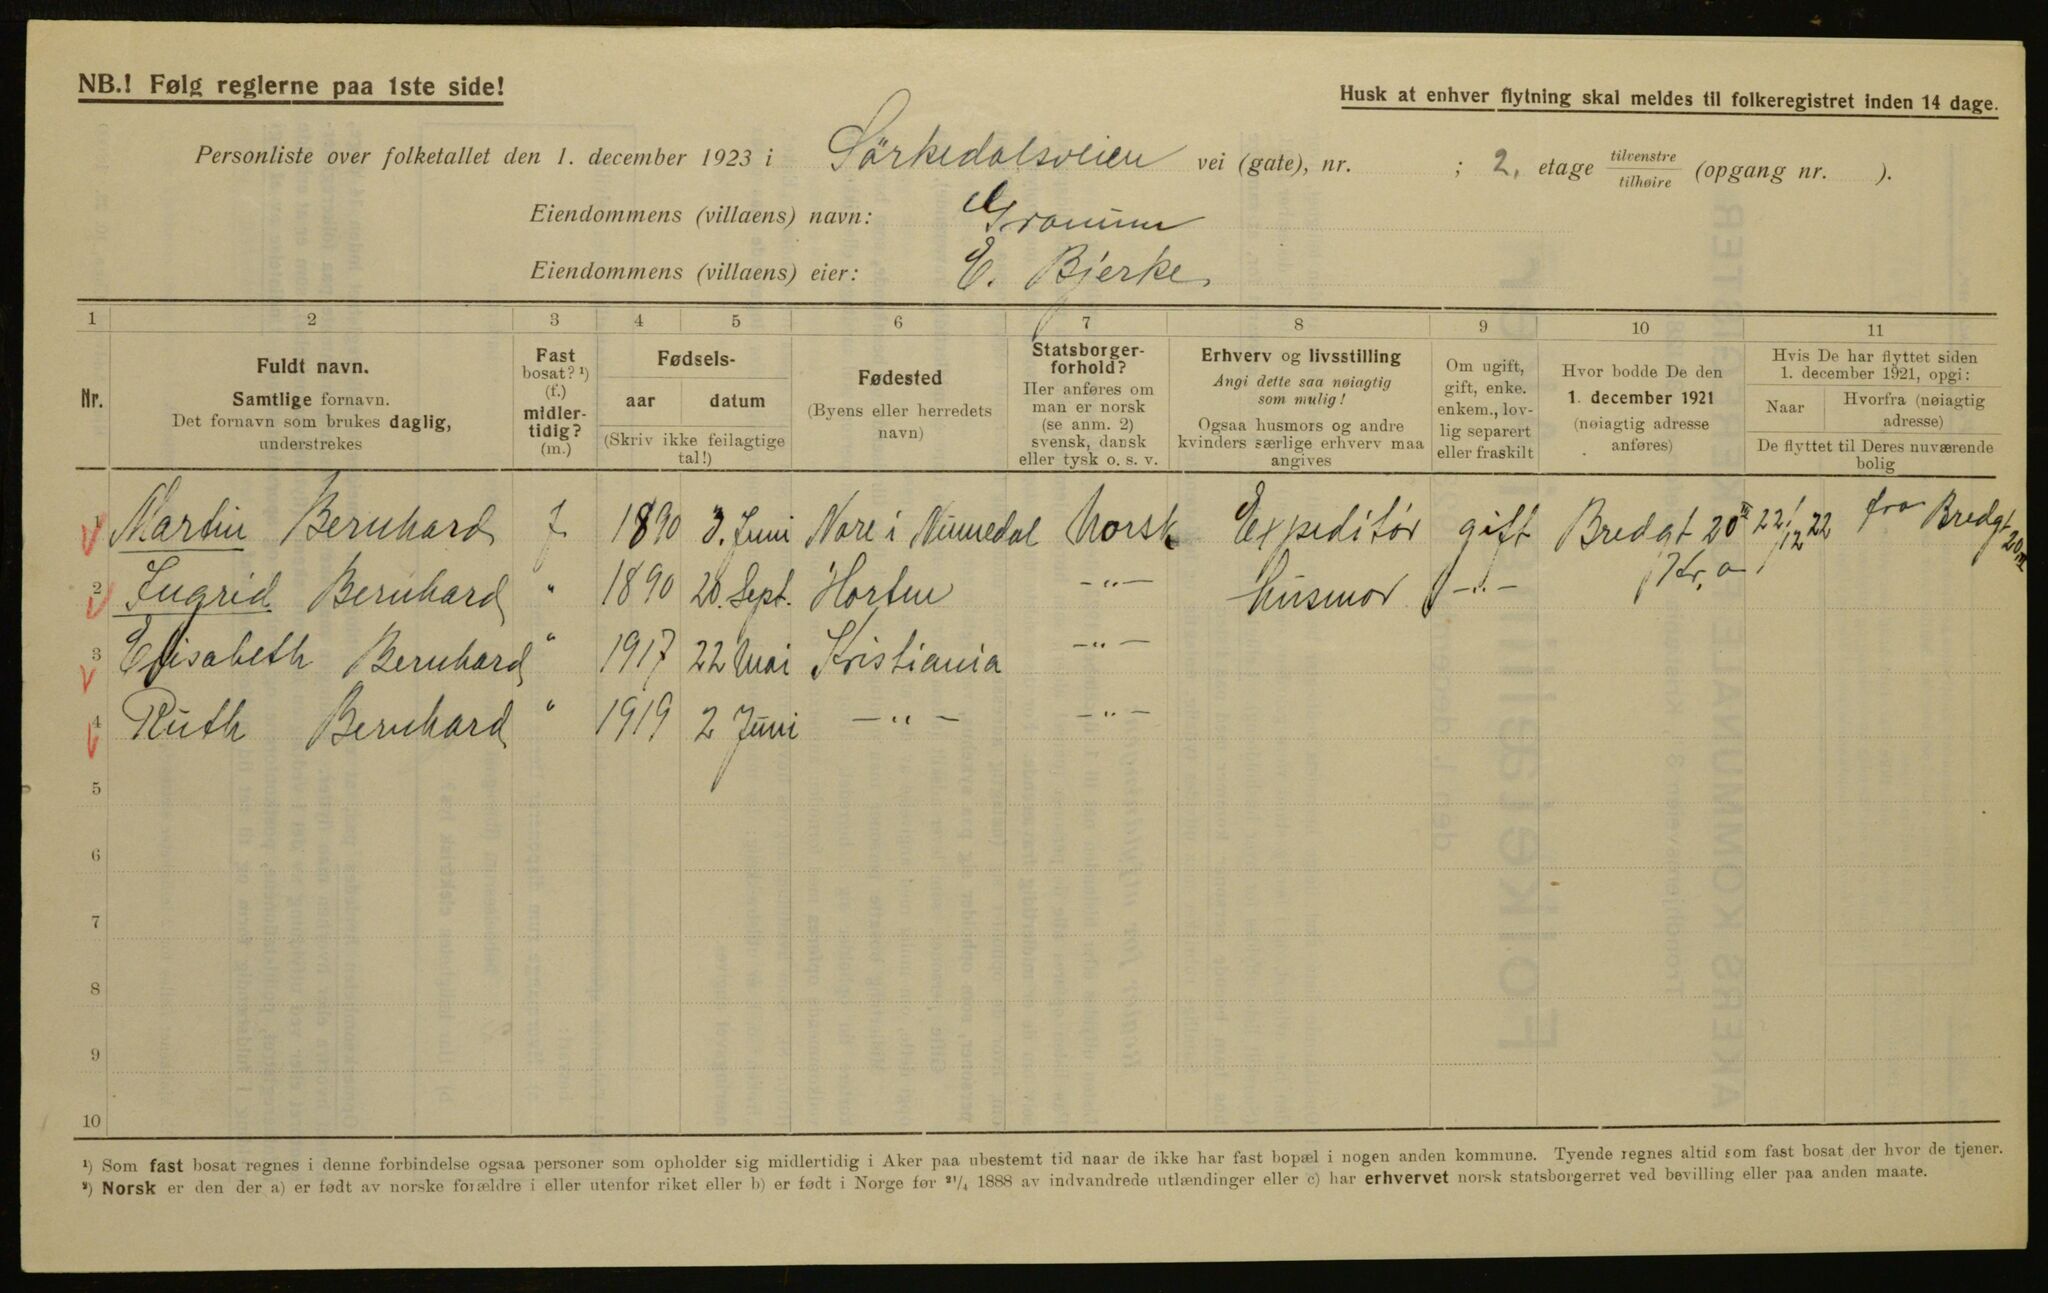 NB.! Følg reglerne paa 1ste side!
Husk at enhver flytning skal meldes til folkeregistret inden 14 dage.
Personliste over folketallet den 1. december 1923 i Sörkedalsveien vei (gate), nr. ; 2. etage tilvenstre/tilhøire (opgang nr. ).
Eiendommens (villaens) navn: Granum
Eiendommens (villaens) eier: E. Bjerke
1 2 3 4 5 6 7 8 9 10 11
Nr.
Fuldt navn.
Samtlige fornavn.
Det fornavn som brukes daglig,
understrekes
Fast
bosat? ¹)
(f.)
midler-
tidig?
(m.)
Fødsels-
aar datum
(Skriv ikke feilagtige
tal!)
Fødested
(Byens eller herredets
navn)
Statsborger-
forhold?
Her anføres om
man er norsk
(se anm. 2)
svensk, dansk
eller tysk o. s. v.
Erhverv og livsstilling
Angi dette saa nøiagtig
som mulig!
Ogsaa husmors og andre
kvinders særlige erhverv maa
angives
Om ugift,
gift, enke.
enkem., lov-
lig separert
eller fraskilt
Hvor bodde De den
1. december 1921
(nøiagtig adresse
anføres)
Hvis De har flyttet siden
1. december 1921, opgi:
Naar Hvorfra (nøiagtig
adresse)
De flyttet til Deres nuværende
bolig
1 Martin Bernhard f 1890 3. Juni Nore i Numedal Norsk Expeditör gift Bredgt 20 III 22/12 22 fra Bredgt 20 III
2 Ingrid Bernhard " 1890 20. Sept. Horten -"- Husmor -"- Kr.a
3 Elisabeth Bernhard " 1917 22 Mai Kristiania -"-
4 Ruth Bernhard " 1919 2 Juni -"- -"-
5
6
7
8
9
10
¹) Som fast bosat regnes i denne forbindelse ogsaa personer som opholder sig midlertidig i Aker paa ubestemt tid naar de ikke har fast bopæl i nogen anden kommune. Tyende regnes altid som fast bosat der hvor de tjener.
²) Norsk er den der a) er født av norske forældre i eller utenfor riket eller b) er født i Norge før ²¹/₄ 1888 av indvandrede utlændinger eller c) har erhvervet norsk statsborgerret ved bevilling eller paa anden maate.